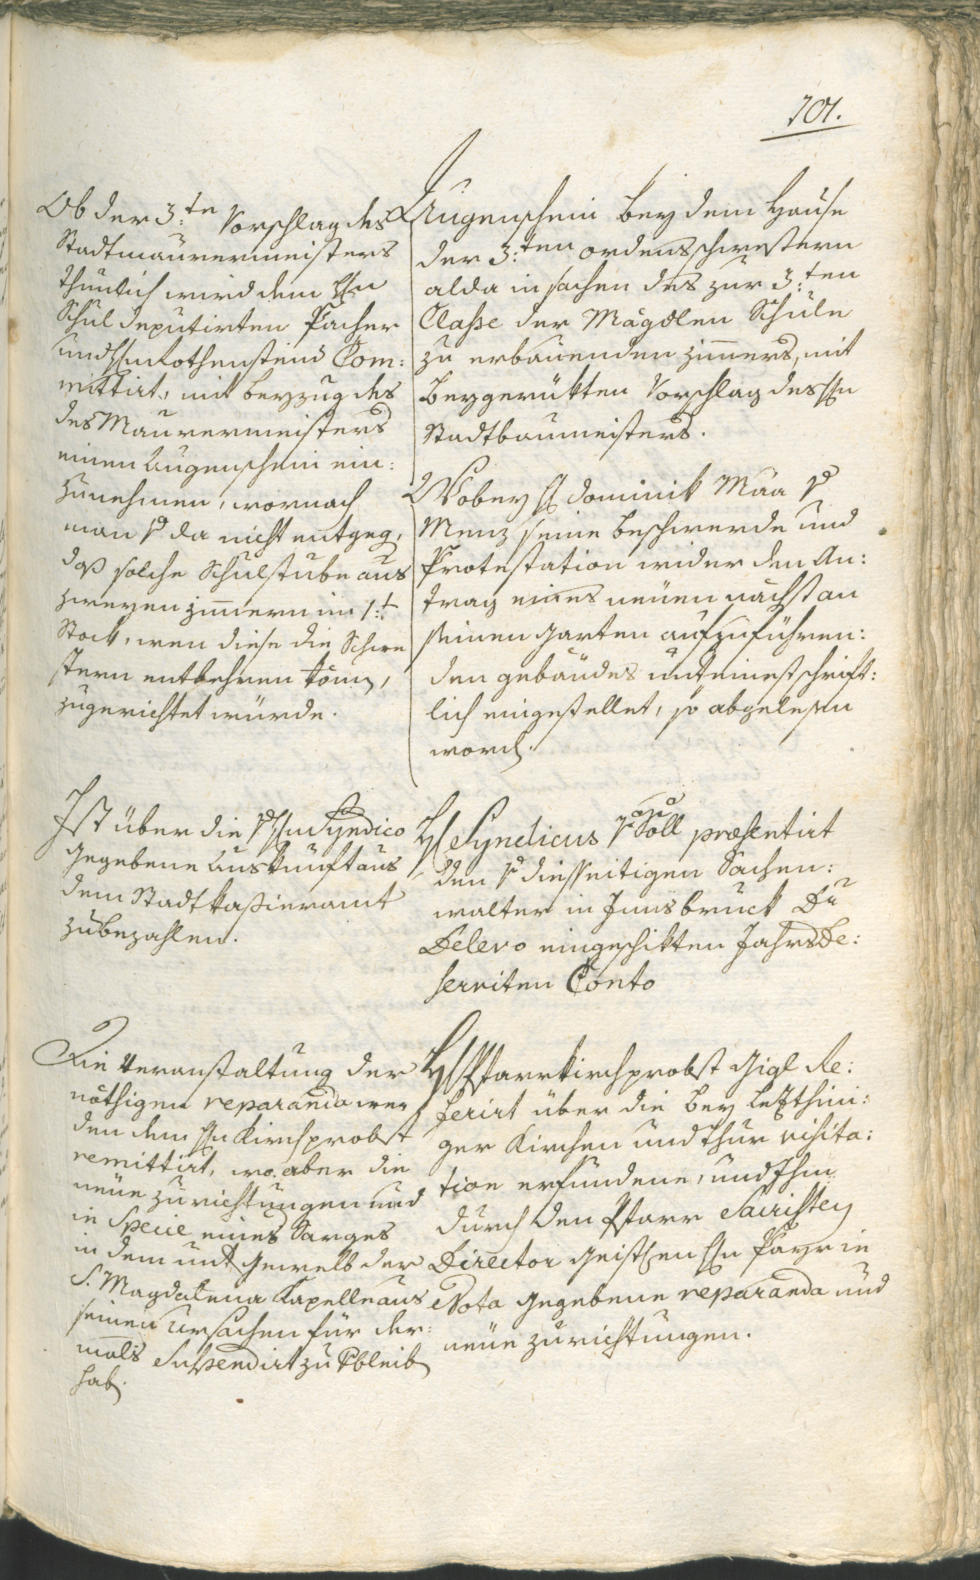 701.
Ob der 3:ten Vorschlag des
Stadtmaurermeisters
thunlich wird dem Hn
Schul deputirten Pacher
und Hn Rothensteiner Com:
mittirt, mit beyzug des
des Maurermeisters
einen Augenschein ein:
zunehmen, wornach
man da nicht entgeg,
daß solche Schulstube aus
zweyen zimmern im 1:t
Stock, wen diese die Schwe
stern entbehren könn,
zugerichtet würde.
Augenschein bey dem Hause
der 3:ten ordensschwestern
alda in sachen des zur 3:ten
Classe der Mägdlen Schule
zu erbauenden zimmers, mit
beygerükten Vorschlag des Hn
Stadtbaumeisters.
Wobey H dominik Maa
Menz seine beschwerde und
Protestation wider den An:
trag eines neuen nächst an
seinen garten aufzuführen:
den gebäudes unteinest schrift:
lich eingestellet, so abgelesen
word.
Ist über die Hn Syndico
gegebene Auskunft aus
dem Stadtkassieramt
zubezahlen.
H Syndicus v Söll præsentirt
den diesseitigen Sachen:
walter in Innsbruck Dr
Delevo eingeschikten Jahrs De:
serviten Conto
Die Veranstaltung der
nöthigen reparanda wer
den dem Hn Kirchprobst
remittirt, wo aber die
neue zurichtungen und
in Specie eines Sarges
in dem unt Gewelb der
S. Magdalena Kapelle aus
seinen ursachen für der:
mals Suspendirt zu verbleib
hab.
H Pfarrkirchprobst Gigl Re:
ferirt über die bey letzthini:
ger Kirchen und thur visita:
tion erfundene, und Ihm
durch den Pfarr Sacristey
Director geistlichen Hn Payr in
Nota gegebene reparanda und
neue zurichtungen.